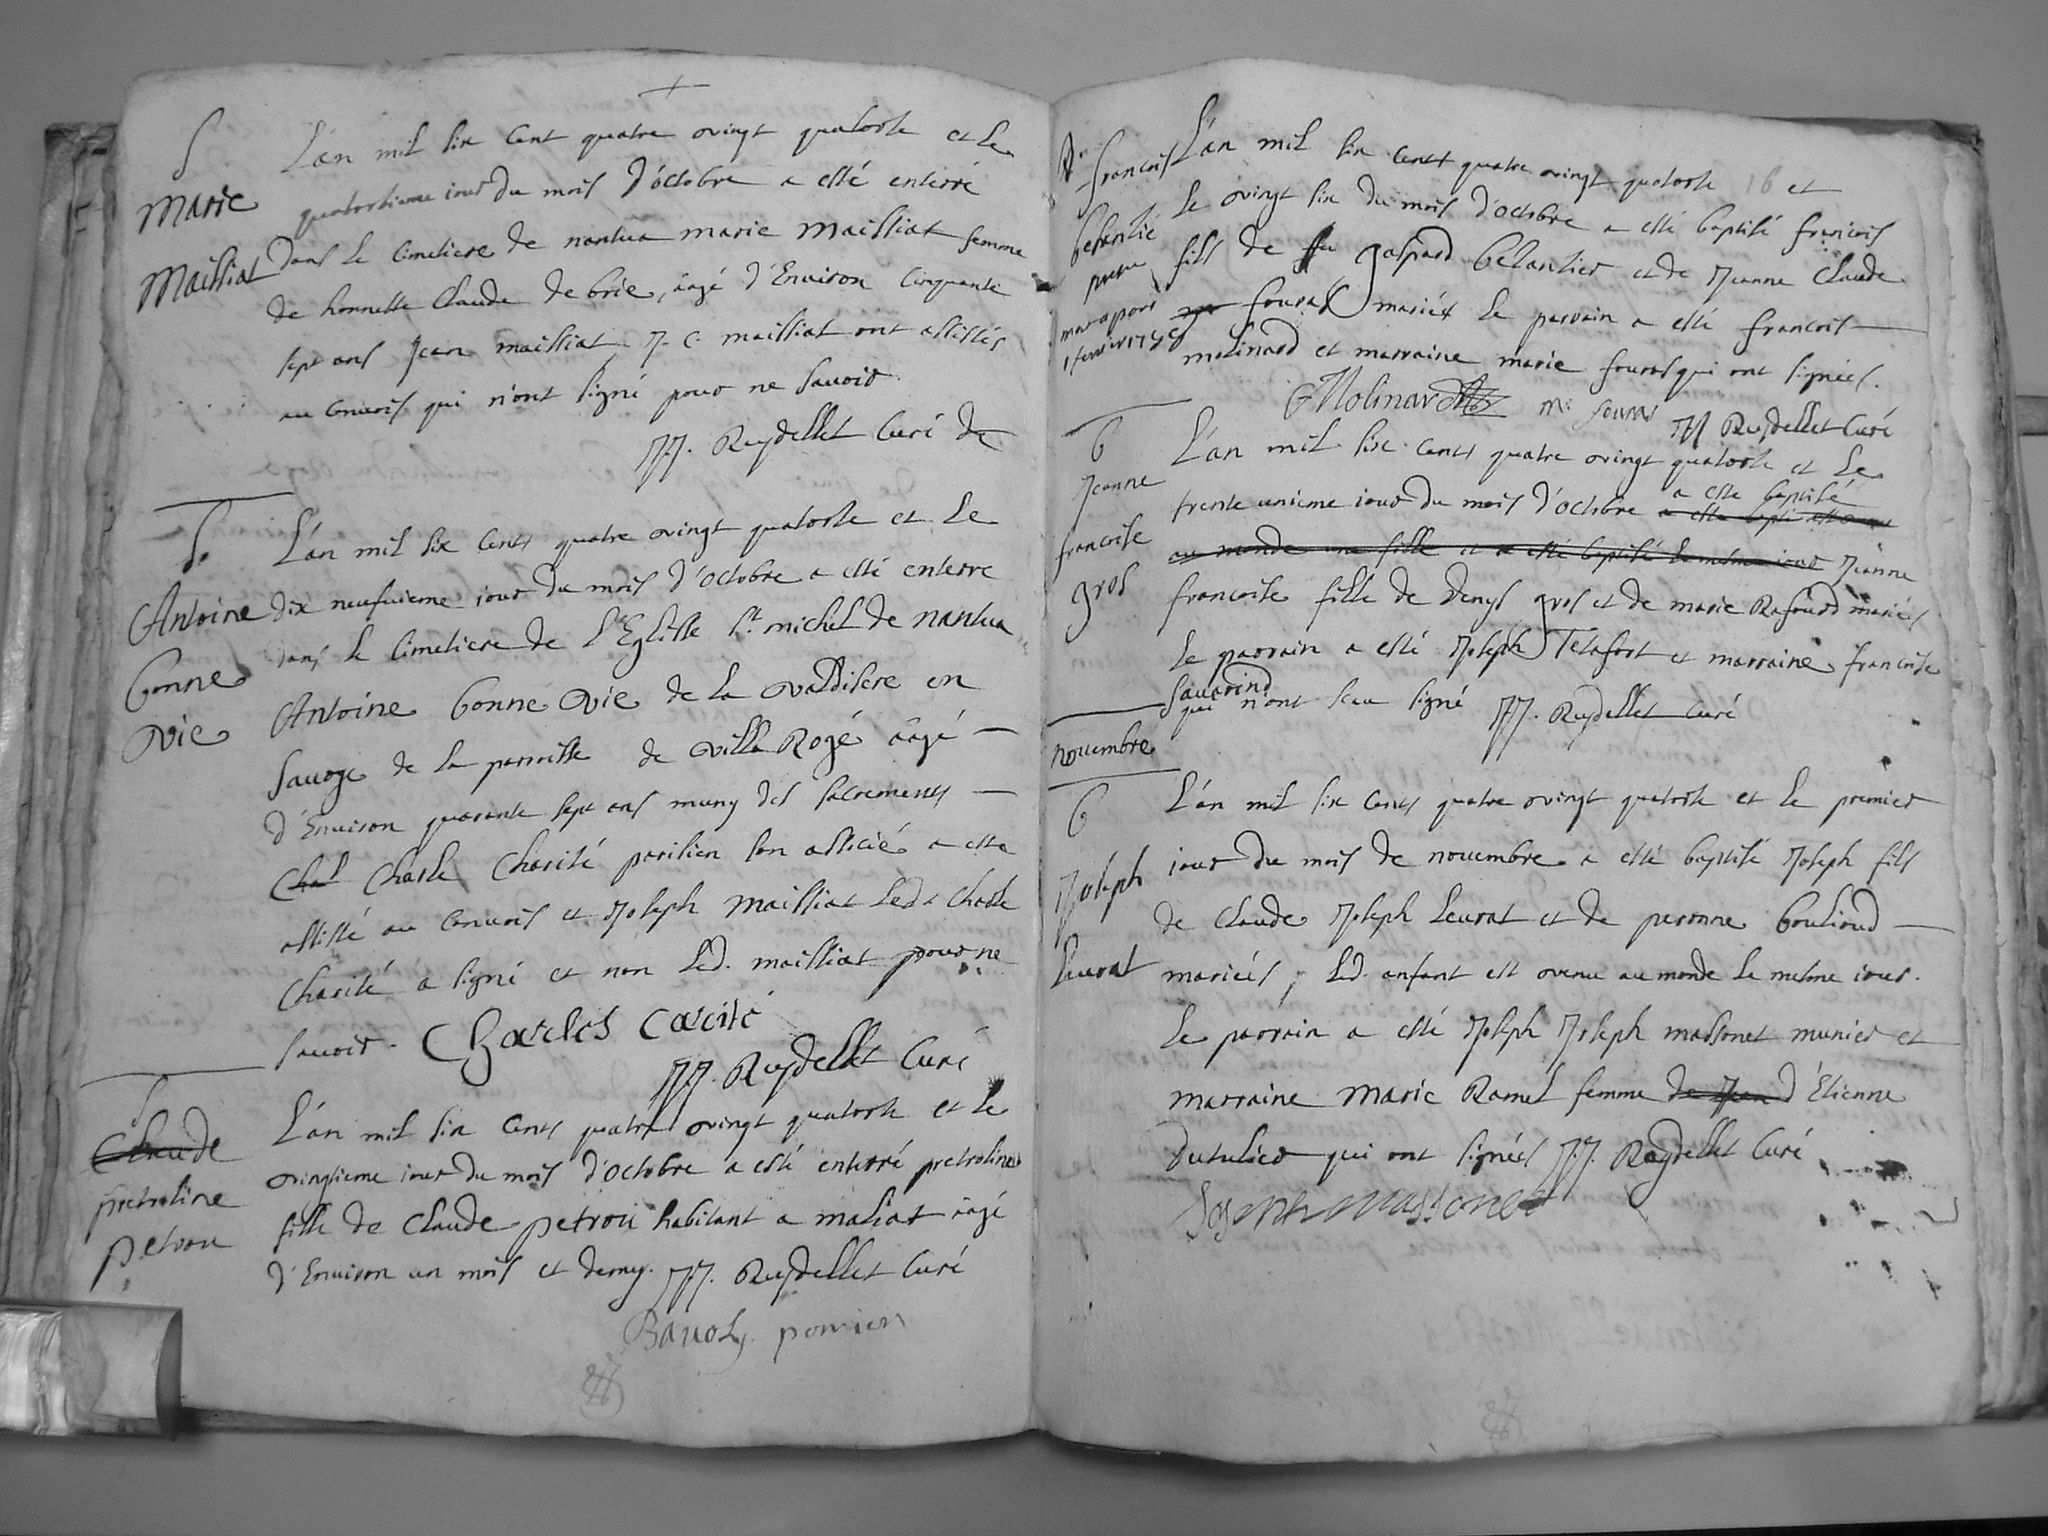 S
Marie
Maissiat
L'an mil six cent quatre vingt quatorse et le
quatorsieme iour du mois d'octobre a esté enterré
dans le cimetiere de nantua marie Maissiat femme
de honneste Claude de brie, aagé d'Enuiron cinquante
sept ans Jean maissiat J. C. maissiat ont assistés
au conuois qui n'ont signé pour ne sauoir.
JJ. Reydellet Curé de
S.
Antoine
bonne
vie
L'an mil six cents quatre vingt quatorse et le
dix neufuieme iour du mois d'octobre a esté enterré
dans le cimetiere de l'Eglisse st. michel de nantua
Antoine bonne vie de la valdisere en
sauoye de la parroisse de villa Rogé aagé
d'Enuiron quarante sept ans muny des sacrements
Chal Charle Charité parisien son associé a esté
assisté au conuois et Joseph Maissiat led. Charle
Charité a signé et non led. maissiat pour ne
sauoir. Charles Carité
JJ. Reydellet Curé
S
Claude
pretroline
petrou
L'an mil six cents quatre vingt quatorse et le
vingtieme iour du mois d'octobre a esté enterré pretroline
fille de Claude petrou habitant a maliat aagé
d'Enuiron un mois et demy. JJ. Reydellet Curé
francois
besantié
mort a
1 feurier
L'an mil six cents quatre vingt quatorse 16 et
le vingt six du mois d'octobre a esté baptisé francois
fils de feu gaspard besantier et de Jeanne Claude
fouras mariés le parrain a esté francois
molinard et marraine marie fouras qui ont signés.
Molinard M. fouras JJ Reydellet Curé
b
Jeanne
francoise
gros
L'an mil six cents quatre vingt quatorse et le
trente unieme iour du mois d'octobre a esté baptisé
au monde une fille et a esté baptisé le mesme iour Jeanne
francoise fille de denys gros et de marie Rafourd mariés
le parrain a esté Joseph Telafort et marraine francoise
sauarind
qui n'ont sceu signé JJ. Reydellet Curé
nouembre
b
Joseph
leurat
L'an mil six cents quatre vingt quatorse et le premier
iour du mois de nouembre a esté baptisé Joseph fils
de Claude Joseph leurat et de peronne boulioud
mariés, led. enfant est venu au monde le mesme iour.
le parrain a esté Joseph Joseph massonet munier et
marraine Marie Ramel femme de Jean d'Etienne
dutulier qui ont signés JJ. Reydellet Curé
Joseph massonet